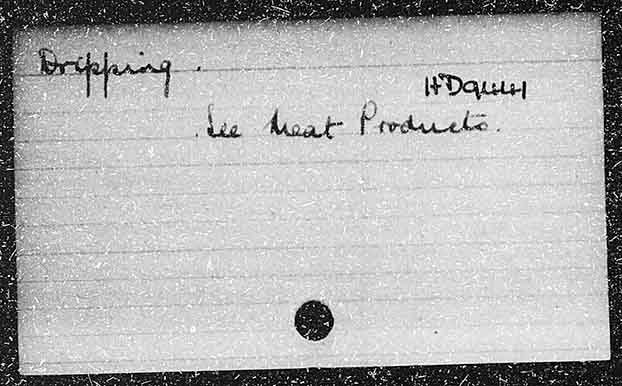 Dripping.
HD9441
See Meat Products.